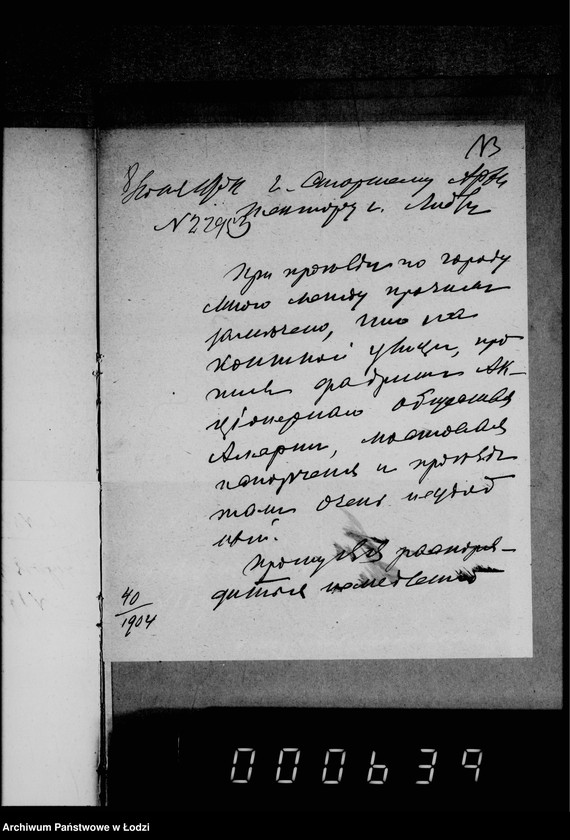 NB
г. Старшему Архи
N 22953 тектору г. Лодзи
При проезде по городу
мною между прочим
замечено, что на
Контной улице, про
тив фабрики Ак-
ціонернаго общества
мостовая
испорчена и проезд
там очень неудоб
ный.
Прошу распоря-
диться немедленно
40
1904
000639
Archiwum Państwowe w Łodzi